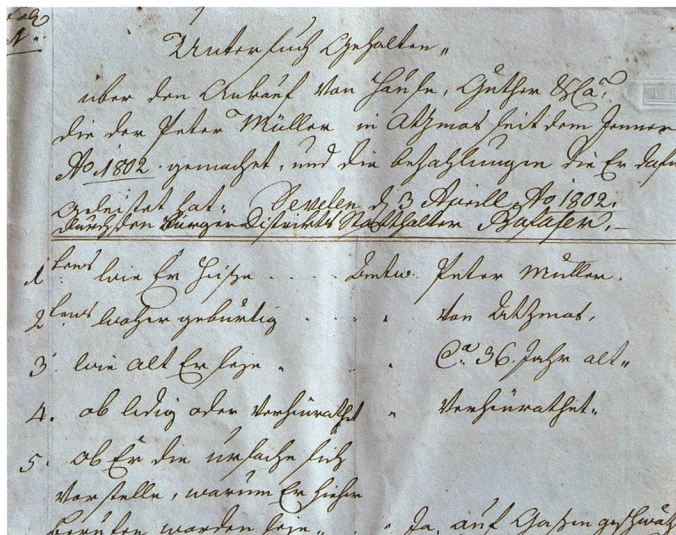 Untersuch gehalten„
über den Ankauf von Häuser, Güther &Ca:
die der Peter Müller in Atzmos seit dem Jenner
Ao 1802. gemachet, und die bezahlungen die Er dafür
geleistet hat: Sevelen d 3 Aprill Ao 1802.
durch den Bürger Districkts Statthalter
1tens wie Er heiße . . . . Antw. Peter Müller.
2tens woher gebürtig . . „ Von Atzmos.
3. wie alt Er seye „ „ Ca. 36. Jahr alt„
4. ob ledig oder verheürathet „ Verheürathet„
5. ob Er die ursache sich
vorstelle, warum Er hieher
berufen worden seye„ „ Ja, auf Gaßen